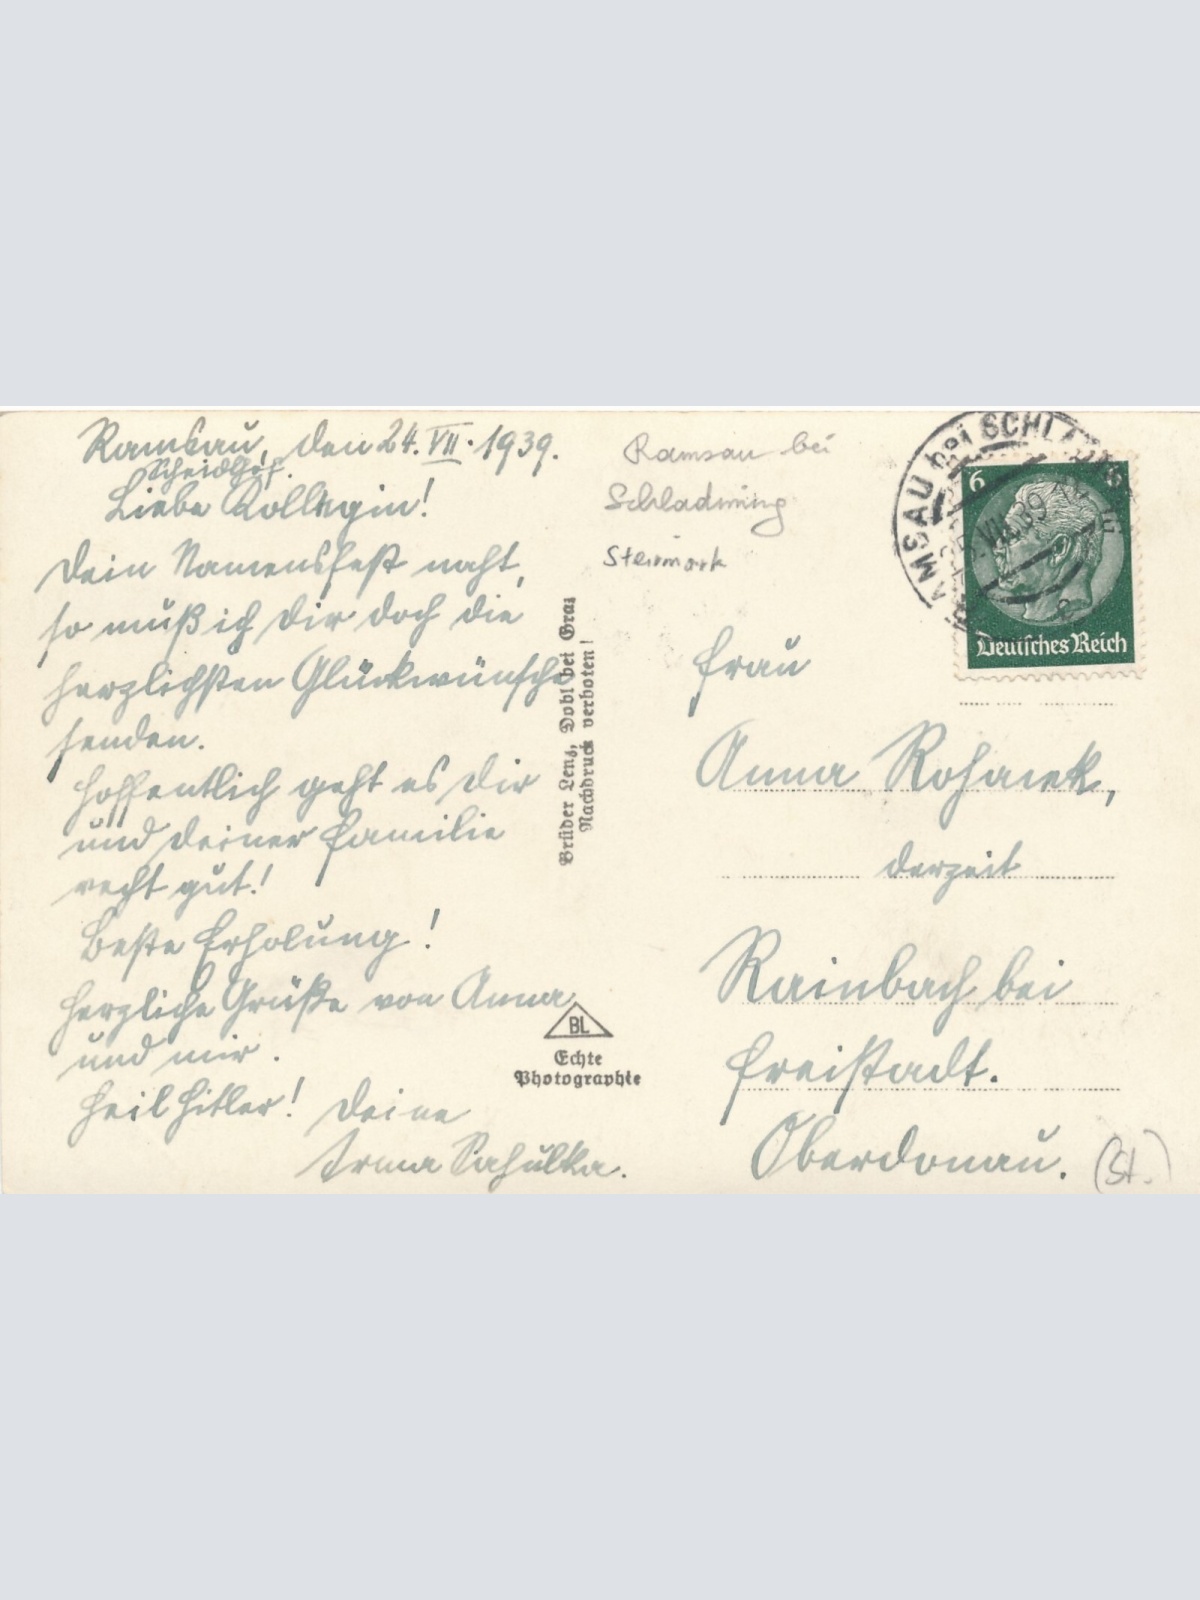 Ramsau, den 24. VII. 1939.
Scheidlhof.
Liebe Kollegin!
Dein Namensfest naht,
so muß ich Dir doch die
herzlichsten Glückwünsche
senden.
Hoffentlich geht es Dir
und Deiner Familie
recht gut!
Beste Erholung!
Herzliche Grüße von Anna
und mir.
Heil Hitler! Deine
Irma Sahulka.
Brüder Lenz, Dobl bei Graz
Nachdruck verboten!
BL
Echte
Photographie
Ramsau bei
Schladming
Steiermark
RAMSAU bei SCHLADMING
VII. 39
6
Deutsches Reich
Frau
Anna
derzeit
Rainbach bei
Freistadt.
Oberdonau.
(St.)